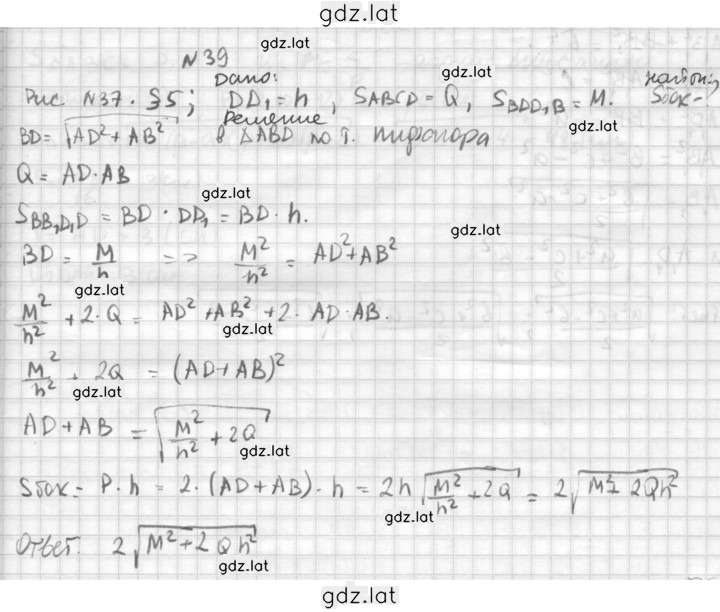 gdz.lat
N39
gdz.lat
Дано: gdz.lat найти:
Рис. N37. §5; DD₁ = h, SABCD = Q, SBDD₁B = M. Sбок - ?
Решение gdz.lat
BD = √(AD² + AB²) в ΔABD по т. Пифагора
Q = AD·AB
gdz.lat
SBB₁D₁D = BD · DD₁ = BD · h.
gdz.lat
BD = M/h => M²/h² = AD² + AB²
gdz.lat
M²/h² + 2·Q = AD² + AB² + 2· AD·AB.
gdz.lat
M²/h² + 2Q = (AD+AB)²
gdz.lat
AD + AB = √(M²/h² + 2Q)
gdz.lat
Sбок = P·h = 2·(AD+AB)·h = 2h √(M²/h² + 2Q) = 2√(M² + 2Qh²)
gdz.lat
Ответ. 2√(M² + 2Qh²)
gdz.lat
gdz.lat